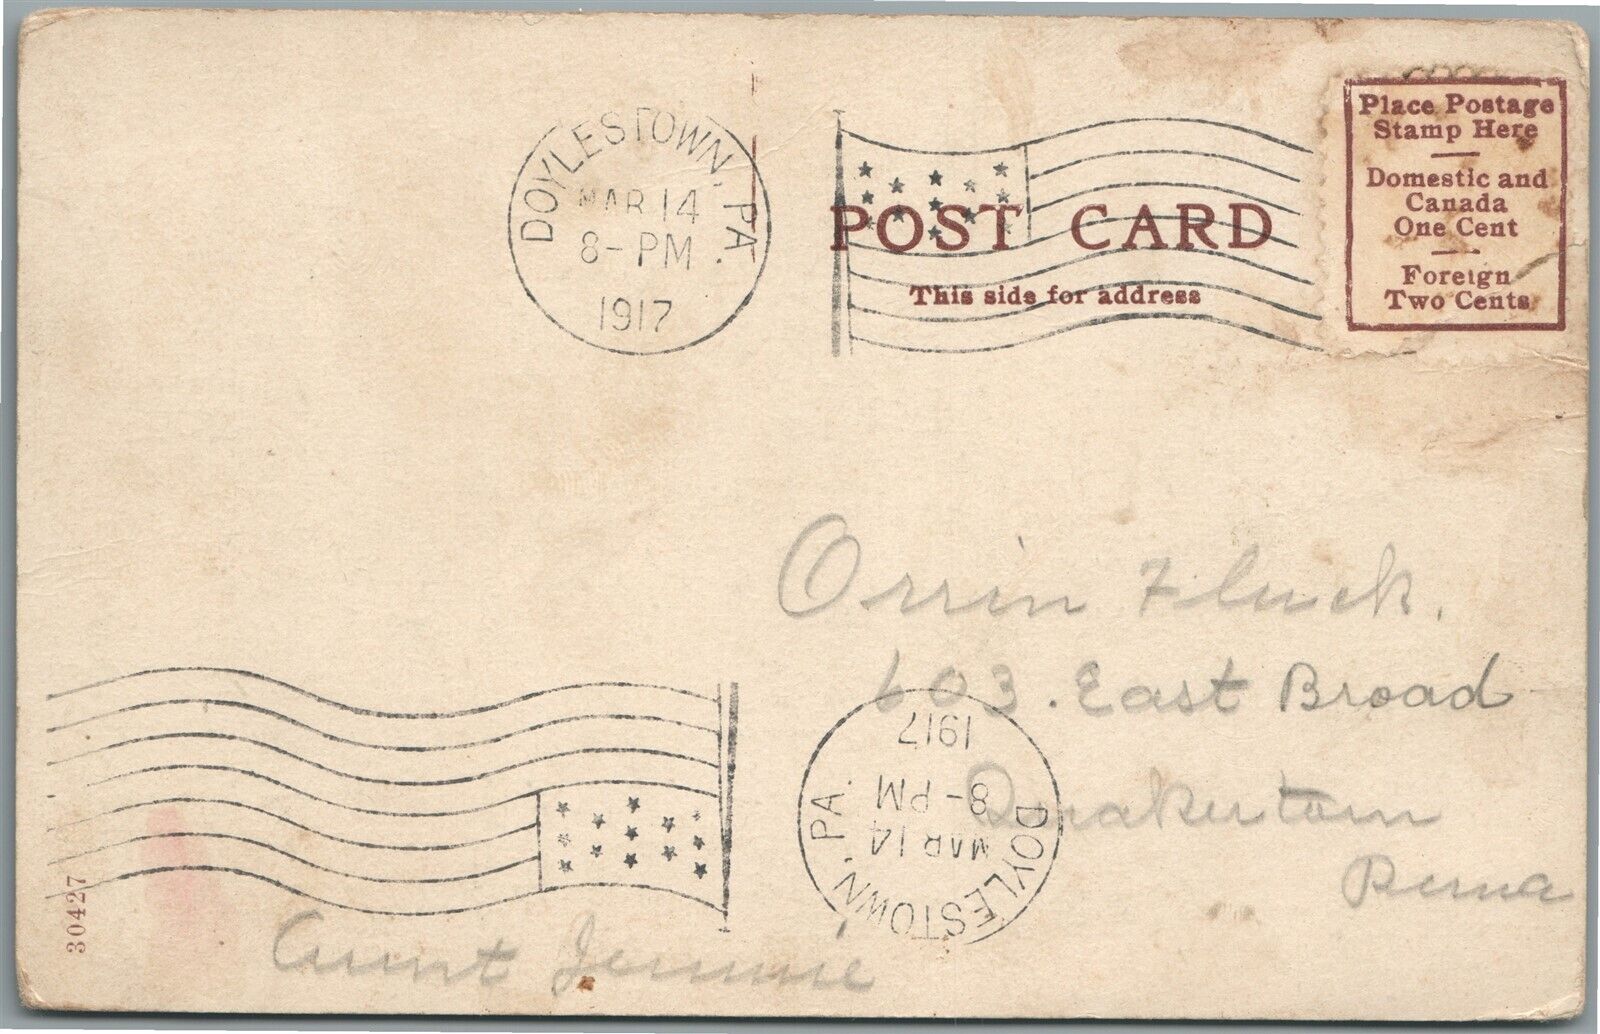 DOYLESTOWN, PA.
MAR 14
8-PM
1917
POST CARD
This side for address
Place Postage
Stamp Here
Domestic and
Canada
One Cent
Foreign
Two Cents
Orrin Fluck.
603. East Broad
Quakertown
Penna
DOYLESTOWN, PA.
MAR 14
8-PM
1917
30427
Aunt Jennie